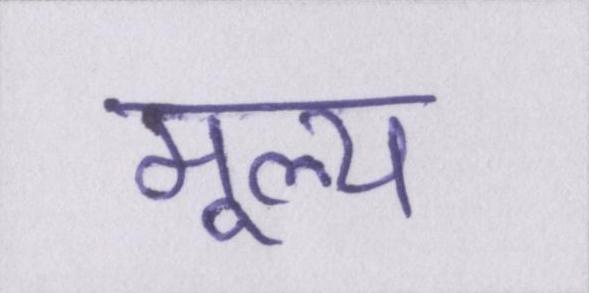 मूल्य